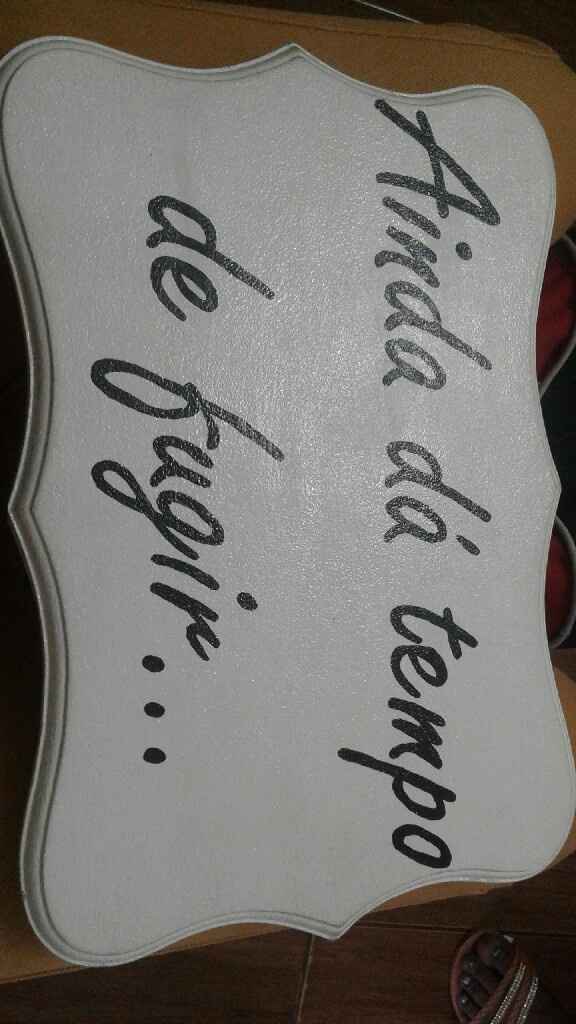 Ainda dá tempo
de fugir...